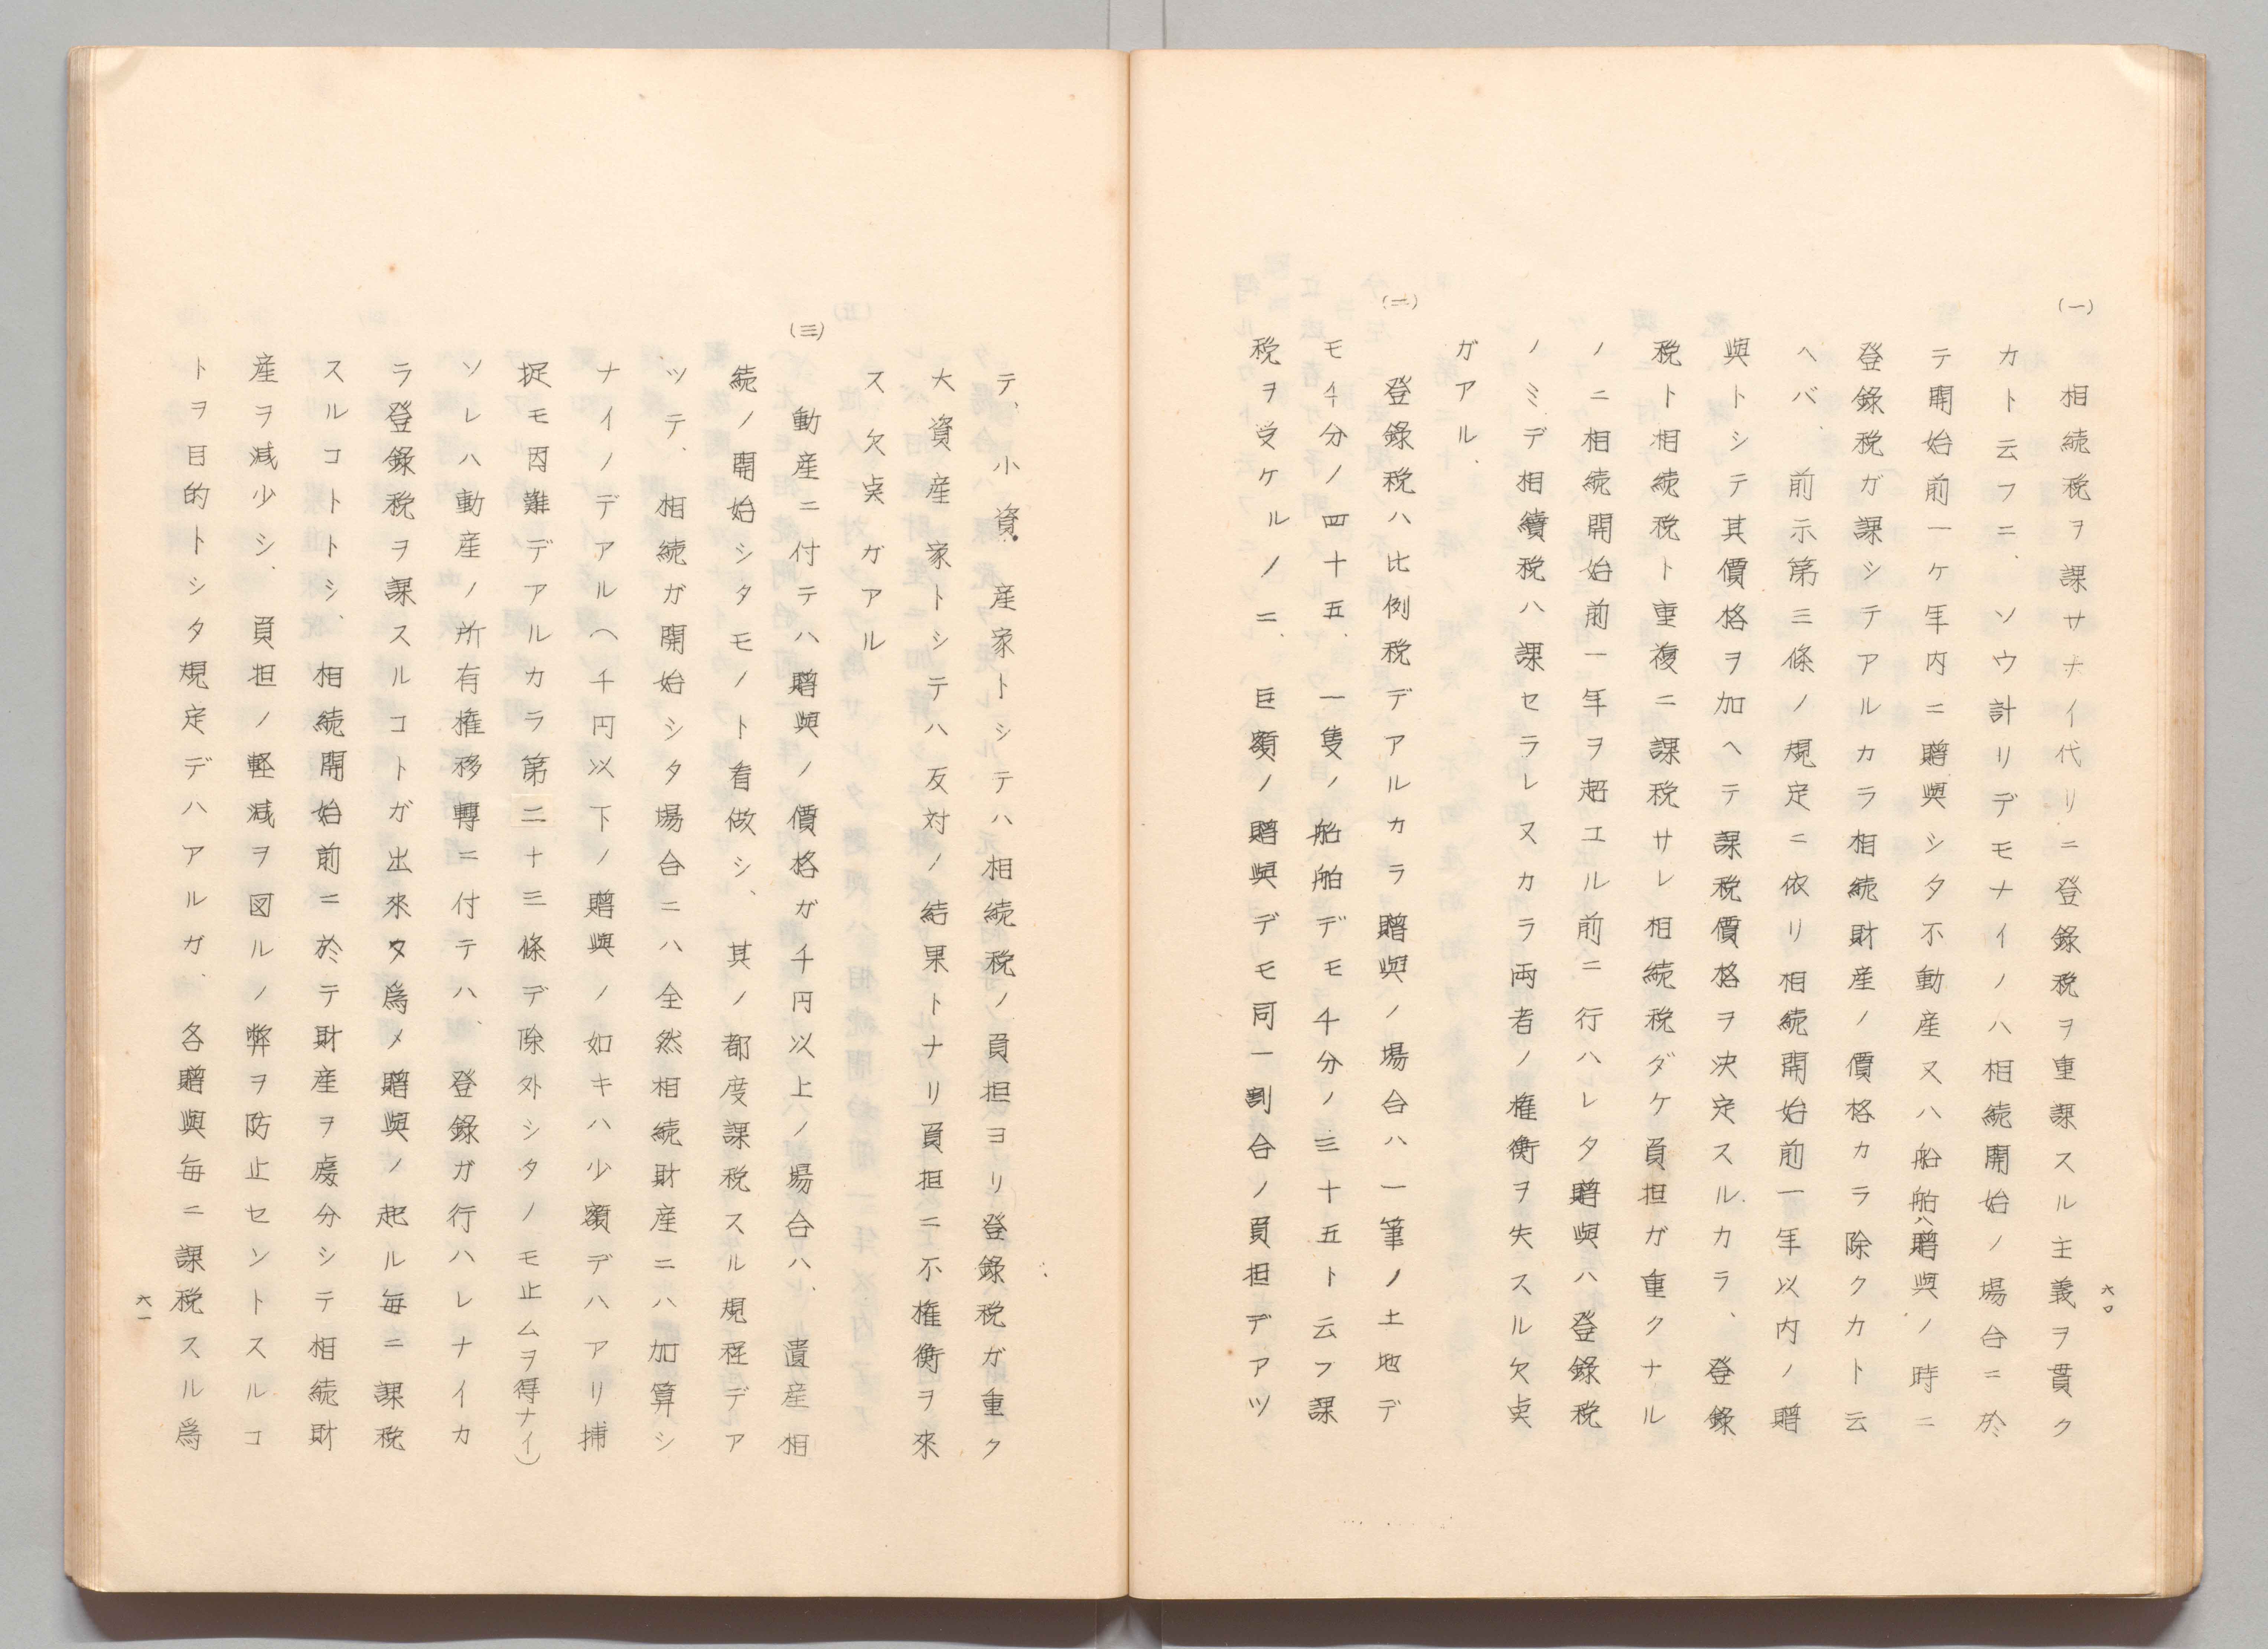 (一)
相続税ヲ課サナイ代リニ登録税ヲ重課スル主義ヲ貫ク
カト云フニ、ソウ計リデモナイノハ相続開始ノ場合ニ於
テ開始前一ケ年内ニ贈與シタ不動産又ハ船舶ハ贈與ノ時ニ
登録税ガ課シテアルカラ相続財産ノ價格カラ除クカト云
ヘバ、前示第三條ノ規定ニ依リ相続開始前一年以内ノ贈
與トシテ其價格ヲ加ヘテ課税價格ヲ決定スルカラ、登録
税ト相続税ト重複ニ課税サレ相続税ダケ負担ガ重クナル
ノニ相続開始前一年ヲ超エル前ニ行ハレタ贈與ハ登録税
ノミデ相續税ハ課セラレヌカラ両者ノ権衡ヲ失スル欠奌
ガアル、
(二)
登録税ハ比例税デアルカラ贈與ノ場合ハ一筆ノ土地デ
モ千分ノ四十五、一隻ノ船舶デモ千分ノ三十五ト云フ課
税ヲ受ケルノニ、巨額ノ贈與デモ同一割合ノ負担デアツ
六〇
テ、小資産家トシルテハ相続税ノ負担ヨリ登録税ガ重ク
大資産家トシテハ反対ノ結果トナリ負担ニ不権衡ヲ來
ス欠奌ガアル
(三)
動産ニ付テハ贈與ノ價格ガ千円以上ノ場合ハ、遺産相
続ノ開始シタモノト看做シ、其ノ都度課税スル規程デア
ツテ、相続ガ開始シタ場合ニハ全然相続財産ニハ加算シ
ナイノデアルヘ千円以下ノ贈與ノ如キハ少額デハアリ捕
捉モ困難デアルカラ第二十三條デ除外シタノモ止ムヲ得ナイ)
ソレハ動産ノ所有権移轉ニ付テハ、登録ガ行ハレナイカ
ラ登録税ヲ課スルコトガ出來タ爲メ贈與ノ起ル毎ニ課税
スルコトトシ、相続開始前ニ於テ財産ヲ處分シテ相続財
産ヲ減少シ、負担ノ軽減ヲ図ルノ弊ヲ防止セントスルコ
トヲ目的トシタ規定デハアルガ、各贈與毎ニ課税スル爲
六一